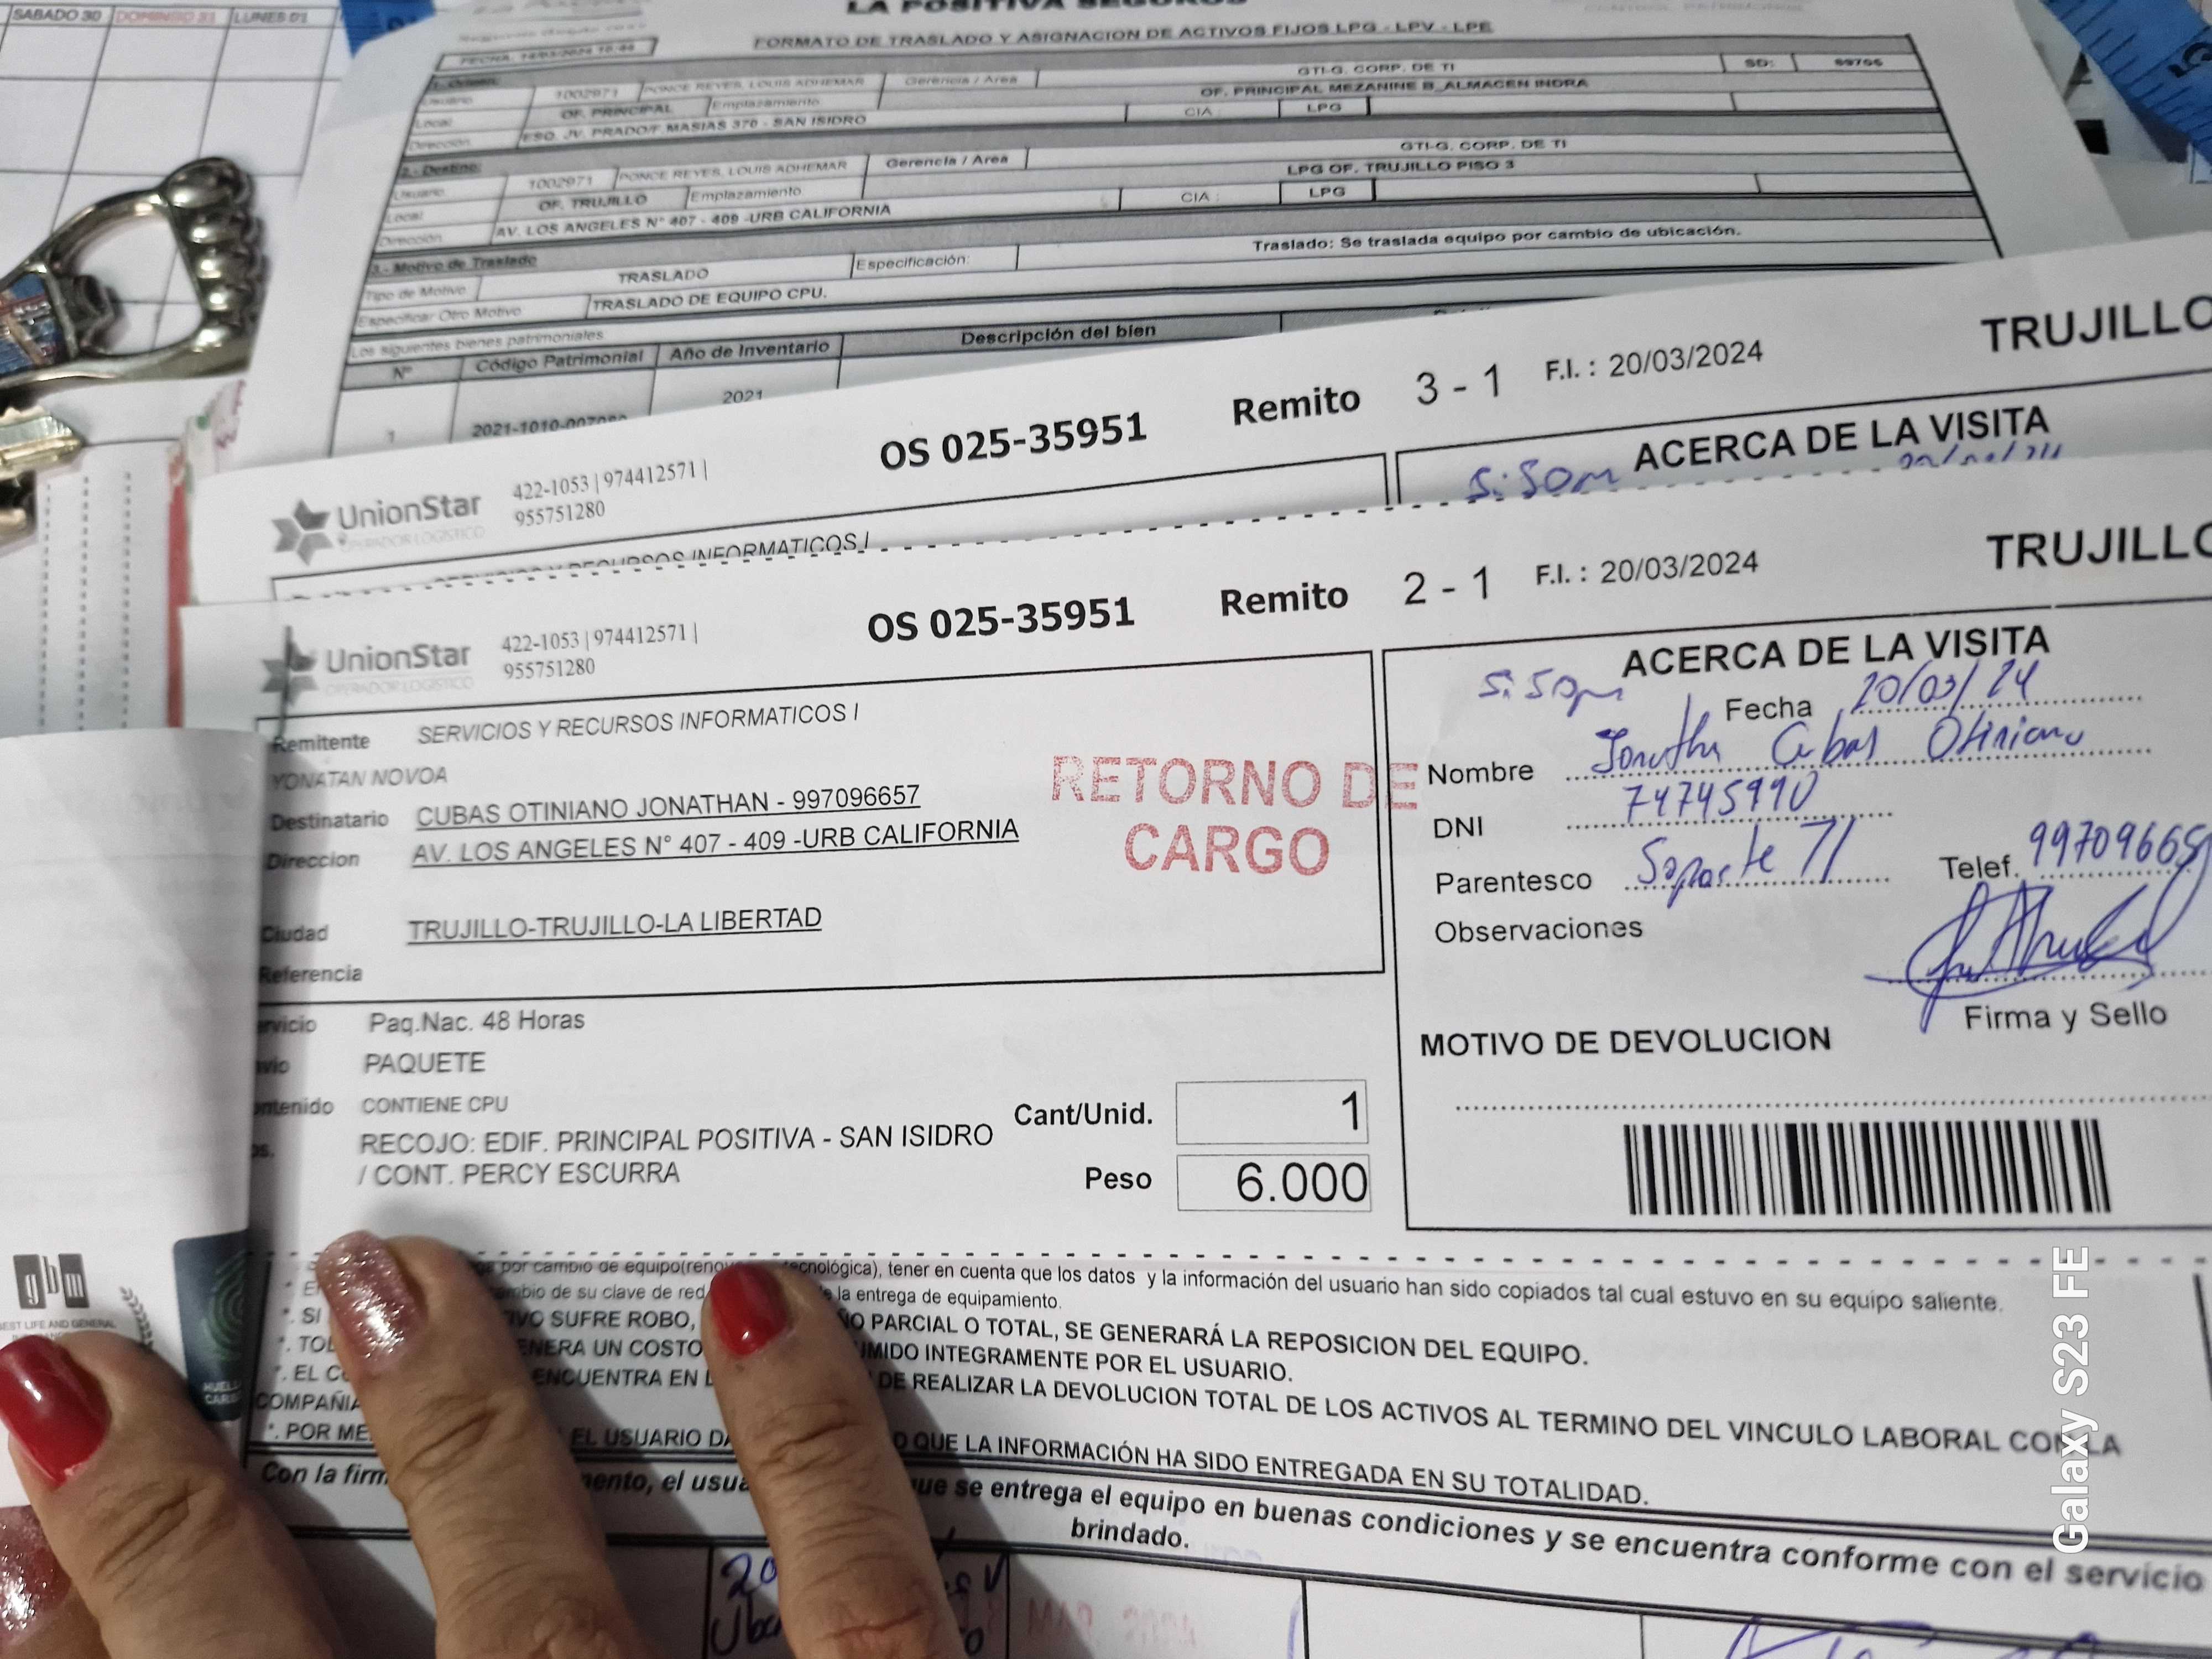 SABADO 30 DOMINGO 31 LUNES 01
LA POSITIVA SEGUROS
FORMATO DE TRASLADO Y ASIGNACION DE ACTIVOS FIJOS LPG - LPV - LPE
GTI-G. CORP. DE TI SD:
Usuario 1002971 PONCE REYES, LOUIS ADHEMAR Gerencia / Area
Local: OF. PRINCIPAL Emplazamiento OF. PRINCIPAL MEZANINE B_ALMACEN INDRA
Dirección ESQ. JV. PRADO/F. MASIAS 370 - SAN ISIDRO CIA : LPG
2.- Destino: GTI-G. CORP. DE TI
Usuario 1002971 PONCE REYES, LOUIS ADHEMAR Gerencia / Area
Local OF. TRUJILLO Emplazamiento LPG OF. TRUJILLO PISO 3
Dirección AV. LOS ANGELES N° 407 - 409 -URB CALIFORNIA CIA : LPG
3.- Motivo de Traslado
Tipo de Motivo TRASLADO Especificación: Traslado: Se traslada equipo por cambio de ubicación.
Especificar Otro Motivo TRASLADO DE EQUIPO CPU.
Los siguientes bienes patrimoniales
N° Código Patrimonial Año de Inventario Descripción del bien
1 2021
UnionStar
OPERADOR LOGÍSTICO
422-1053 | 974412571 |
955751280
OS 025-35951 Remito 3 - 1 F.I. : 20/03/2024 TRUJILLO
ACERCA DE LA VISITA
SERVICIOS Y RECURSOS INFORMATICOS I
UnionStar
OPERADOR LOGÍSTICO
422-1053 | 974412571 |
955751280
OS 025-35951 Remito 2 - 1 F.I. : 20/03/2024 TRUJILLO
Remitente SERVICIOS Y RECURSOS INFORMATICOS I
YONATAN NOVOA
Destinatario CUBAS OTINIANO JONATHAN - 997096657
Direccion AV. LOS ANGELES N° 407 - 409 -URB CALIFORNIA
Ciudad TRUJILLO-TRUJILLO-LA LIBERTAD
Referencia
RETORNO DE
CARGO
ACERCA DE LA VISITA
Fecha 20/03/24
Nombre Jonathan Cubas Otiniano
DNI 74745990
Parentesco Soporte TI Telef. 99709665
Observaciones
Firma y Sello
MOTIVO DE DEVOLUCION
Paq.Nac. 48 Horas
PAQUETE
CONTIENE CPU
RECOJO: EDIF. PRINCIPAL POSITIVA - SAN ISIDRO
/ CONT. PERCY ESCURRA
Cant/Unid. 1
Peso 6.000
por cambio de equipo(reno ecnológica), tener en cuenta que los datos y la información del usuario han sido copiados tal cual estuvo en su equipo saliente.
mbio de su clave de red la entrega de equipamiento.
*. SI VO SUFRE ROBO, O PARCIAL O TOTAL, SE GENERARÁ LA REPOSICION DEL EQUIPO.
*. TO ENERA UN COSTO UMIDO INTEGRAMENTE POR EL USUARIO.
*. EL C ENCUENTRA EN DE REALIZAR LA DEVOLUCION TOTAL DE LOS ACTIVOS AL TERMINO DEL VINCULO LABORAL CON LA
COMPAÑIA
*. POR ME EL USUARIO DA O QUE LA INFORMACIÓN HA SIDO ENTREGADA EN SU TOTALIDAD.
Con la firm mento, el usua ue se entrega el equipo en buenas condiciones y se encuentra conforme con el servicio
brindado.
gbm
BEST LIFE AND GENERAL
Galaxy S23 FE